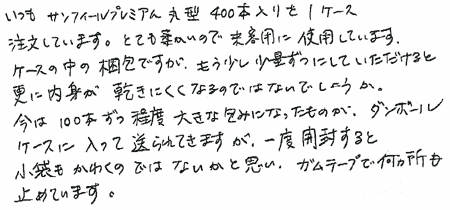 いつも サンフィールプレミアム 丸型 400本入りを1ケース
注文しています。とても柔かいので来客用に使用しています。
ケースの中の梱包ですが、もう少し少量ずつにしていただけると
更に内身が乾きにくくなるのではないでしょうか。
今は100本ずつ程度大きな包みになったものが、ダンボール
ケースに入って送られてきますが、一度開封すると
小袋もかわくのではないかと思い、ガムテープで何カ所も
止めています。